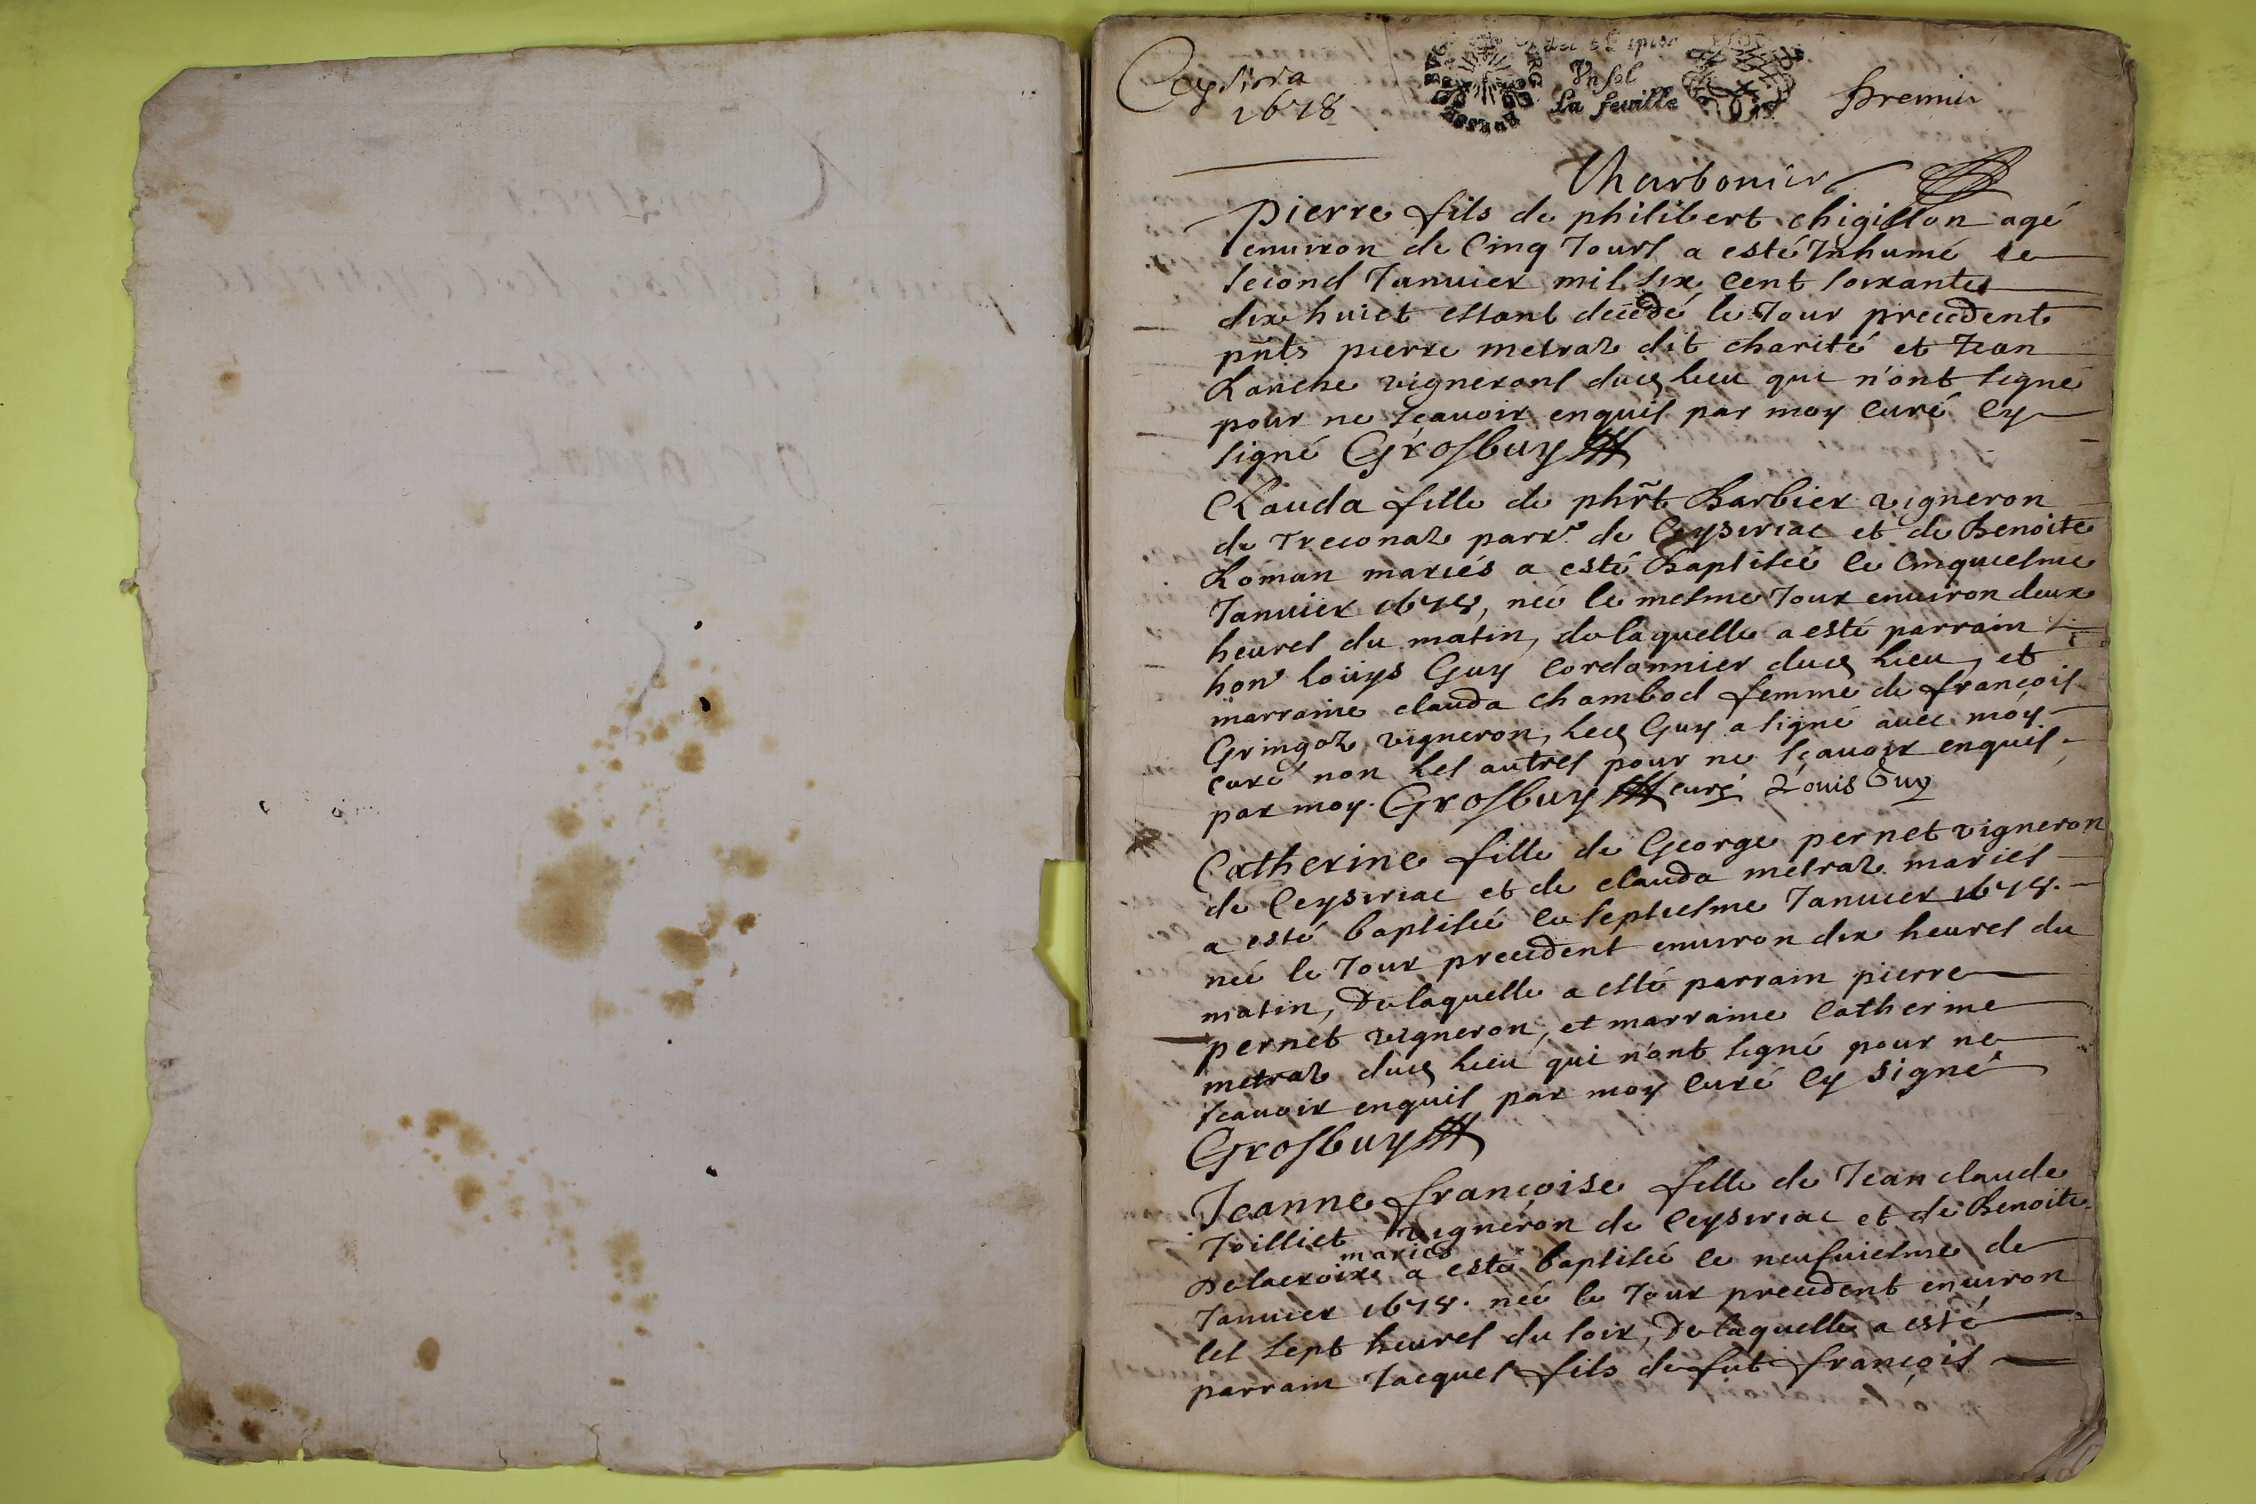 Ceysiria
1678
BOURG BRESSE
Un sol
La feuille
premier
Charbonier
Pierre fils de philibert chigillon agé
enuiron de Cinq Jours a esté Inhumé le
second Januier mil six cent soixante
dixhuict estant decedé le Jour precedent
pnts pierre metraz dit charité et Jean
Ranche vignerons dud lieu qui n'ont signé
pour ne sçauoir enquis par moy curé cy
signé Grosbuy
Clauda fille de phrt Barbier vigneron
de Treconaz parr.e de Ceysiriac et de Benoite
Roman mariés a esté baptisée le cinquiesme
Januier 1678, née le mesme Jour enuiron deux
heures du matin, de laquelle a esté parrain
hon Loüys Guy Cordonnier dud lieu, et
marraine clauda chambod femme de françois
Gringoz vigneron, led Guy a signé auec moy
curé non les autres pour ne sçauoir enquis
par moy. Grosbuy curé Louis Guy
Catherine fille de George pernet vigneron
de Ceysiriac et de clauda metraz mariés
a esté baptisée le septiesme Januier 1678.
née le Jour precedent enuiron dix heures du
matin, De laquelle a esté parrain pierre
pernet vigneron, et marraine Catherine
metraz dud lieu qui n'ont signé pour ne
sçauoir enquis par moy curé cy signé
Grosbuy
Jeanne françoise fille de Jean claude
Joilliet vigneron de Ceysiriac et de Benoite
mariés
Delacroix a esté baptisée le neufuiesme de
Januier 1678. née le Jour precedent enuiron
les sept heures du soir, De laquelle a esté
parrain Jacques fils de fut françois